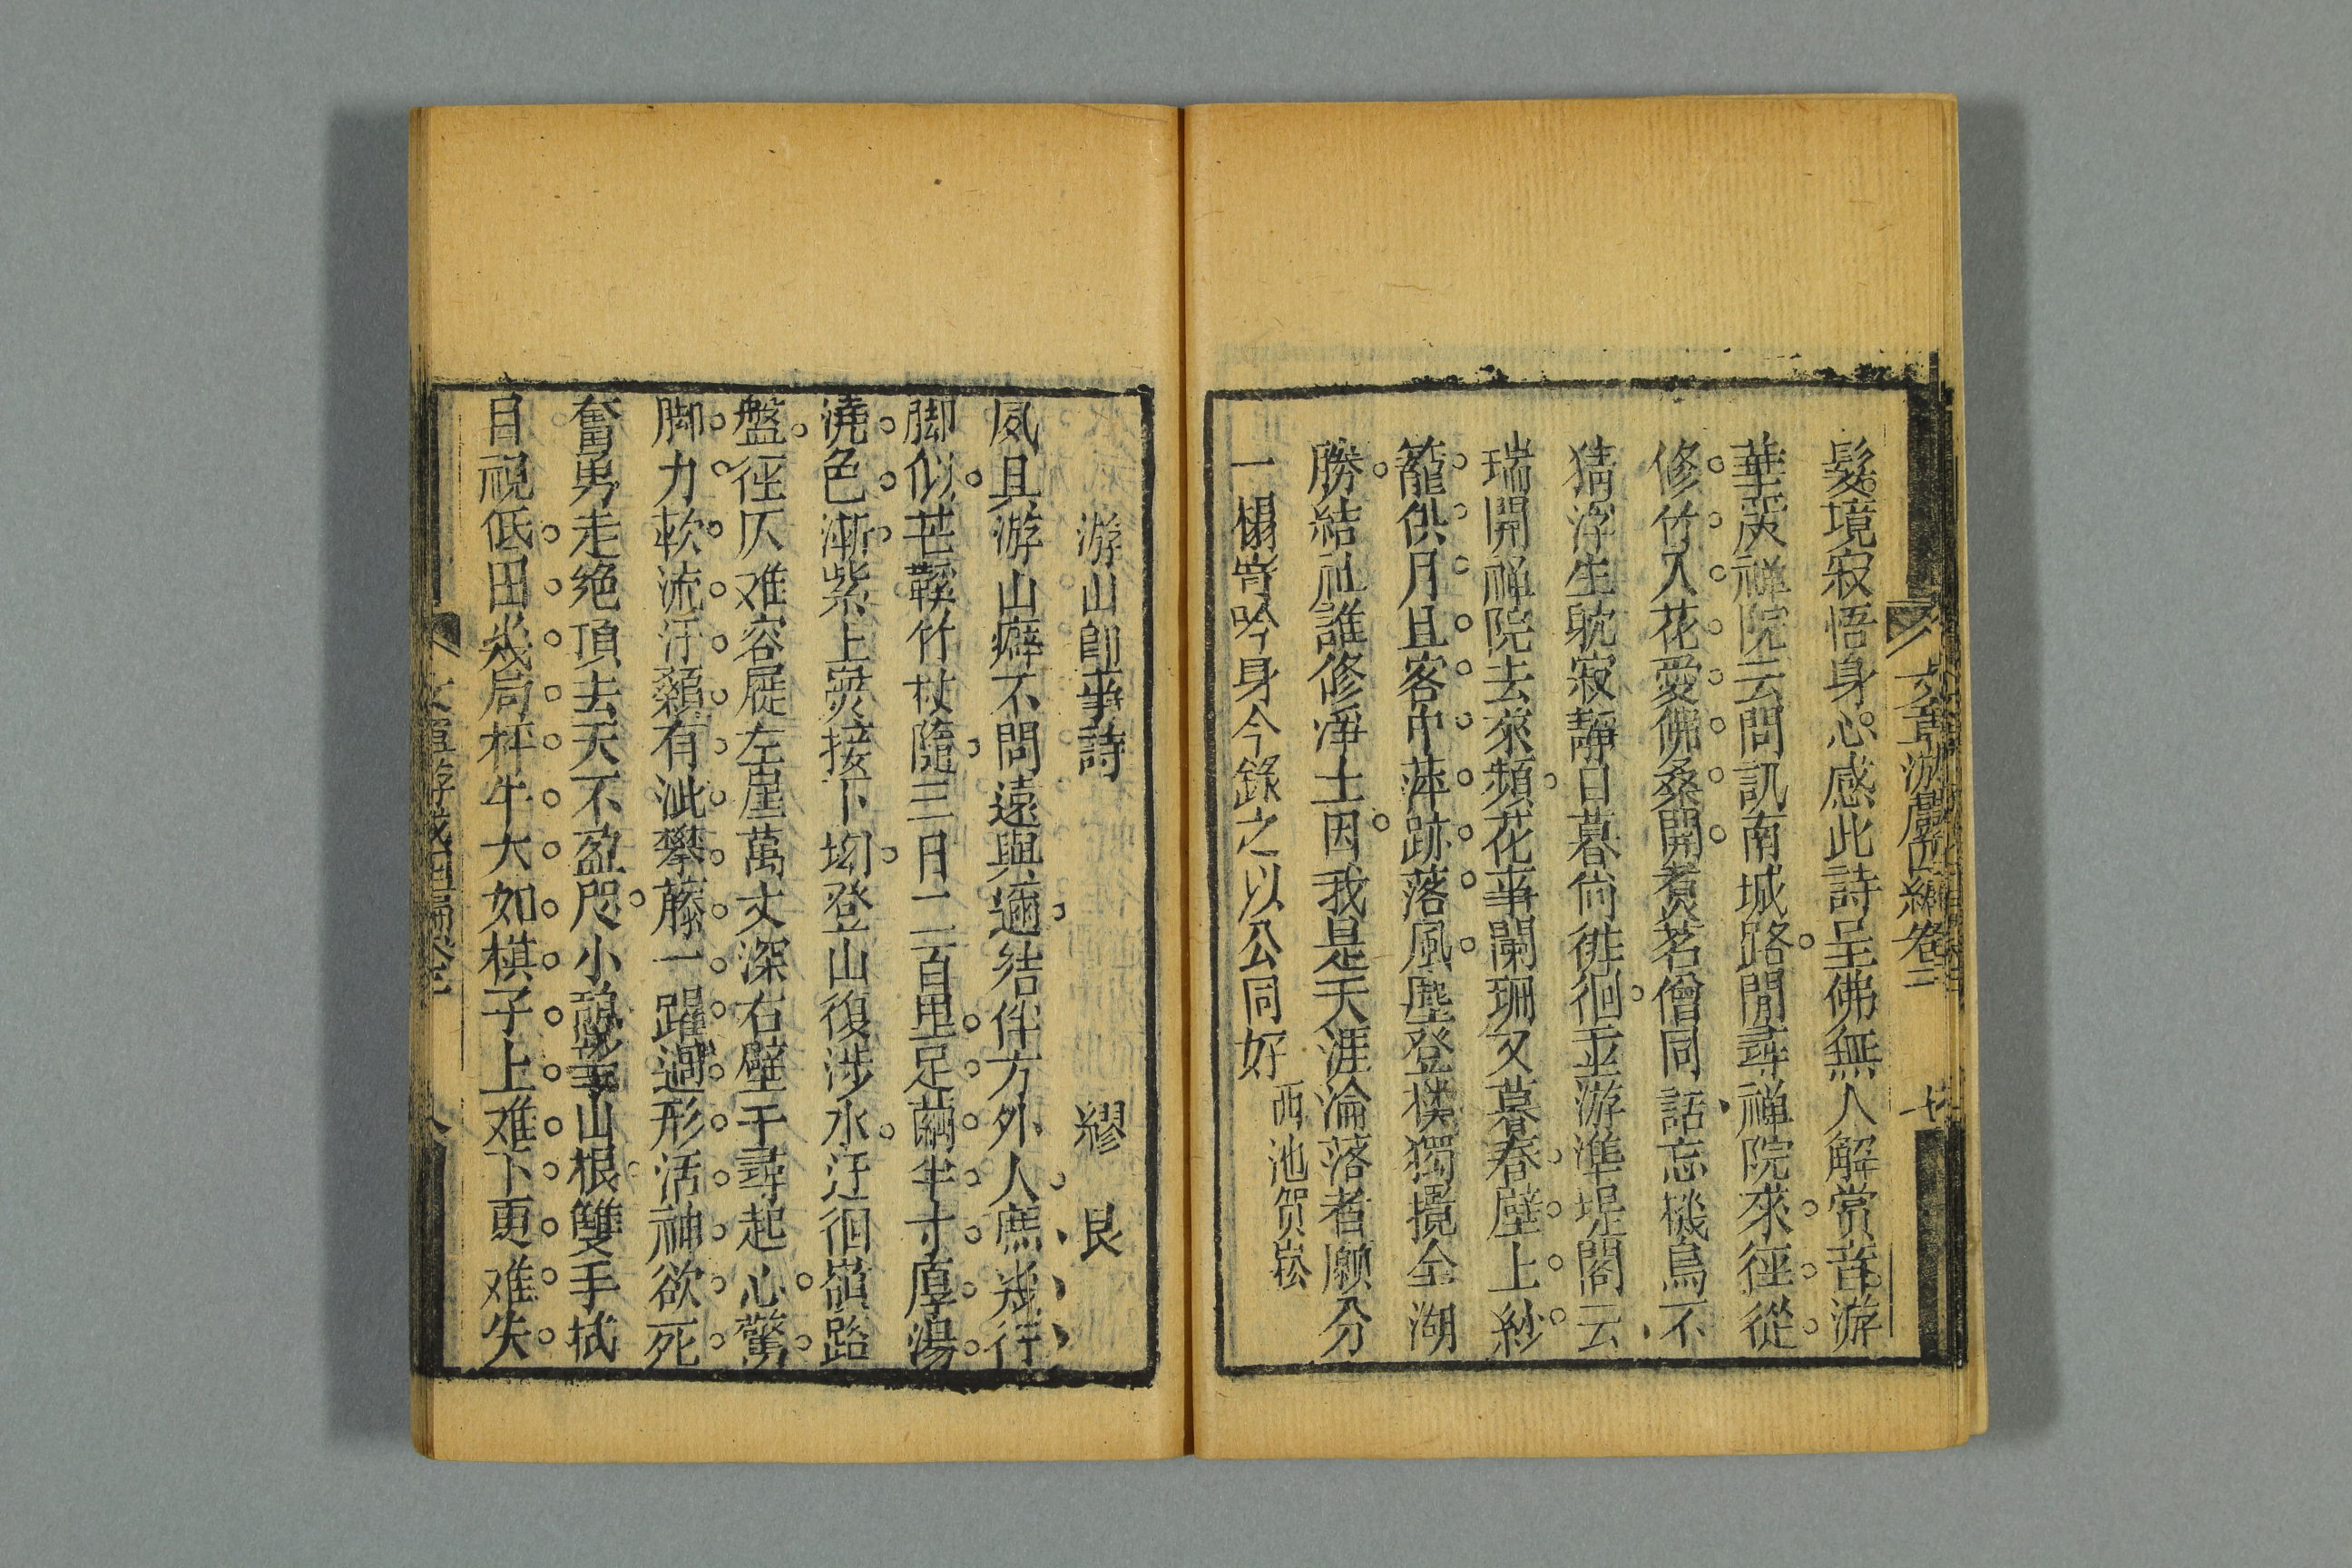 文章游戲四編卷二
七
髮境寂悟身心感此詩呈佛無人解賞音游
華嚴禅院云問訊南城路閒尋禅院來徑從
修竹入花愛佛桑開煑茗僧同話忘機鳥不
猜浮生耽寂静日暮尚徘徊並游準堤閣云
瑞開禅院去來頻花事闌珊又暮春壁上紗
籠供月且客中萍跡落風塵登樓獨攬全湖
勝結社誰修净土因我是天涯淪落者願分
一榻寄吟身今錄之以公同好 西池贺崧
游山卽事詩 繆艮
夙具游山癖不問遠與邇結伴方外人庶㡬行
脚似芒鞵竹杖隨三月二百里足繭半寸厚湯
澆色漸紫上嶺接下坳登山復涉水迂徊嶺路
盤徑仄难容屣左崖萬丈深右壁千尋起心驚
脚力軟流汗顙有泚攀藤一躍過形活神欲死
奮勇走绝頂去天不盈咫小憩挲山根雙手拭
目視低田㡬局枰牛大如棋子上难下更难失
文章游戲四編卷二
八